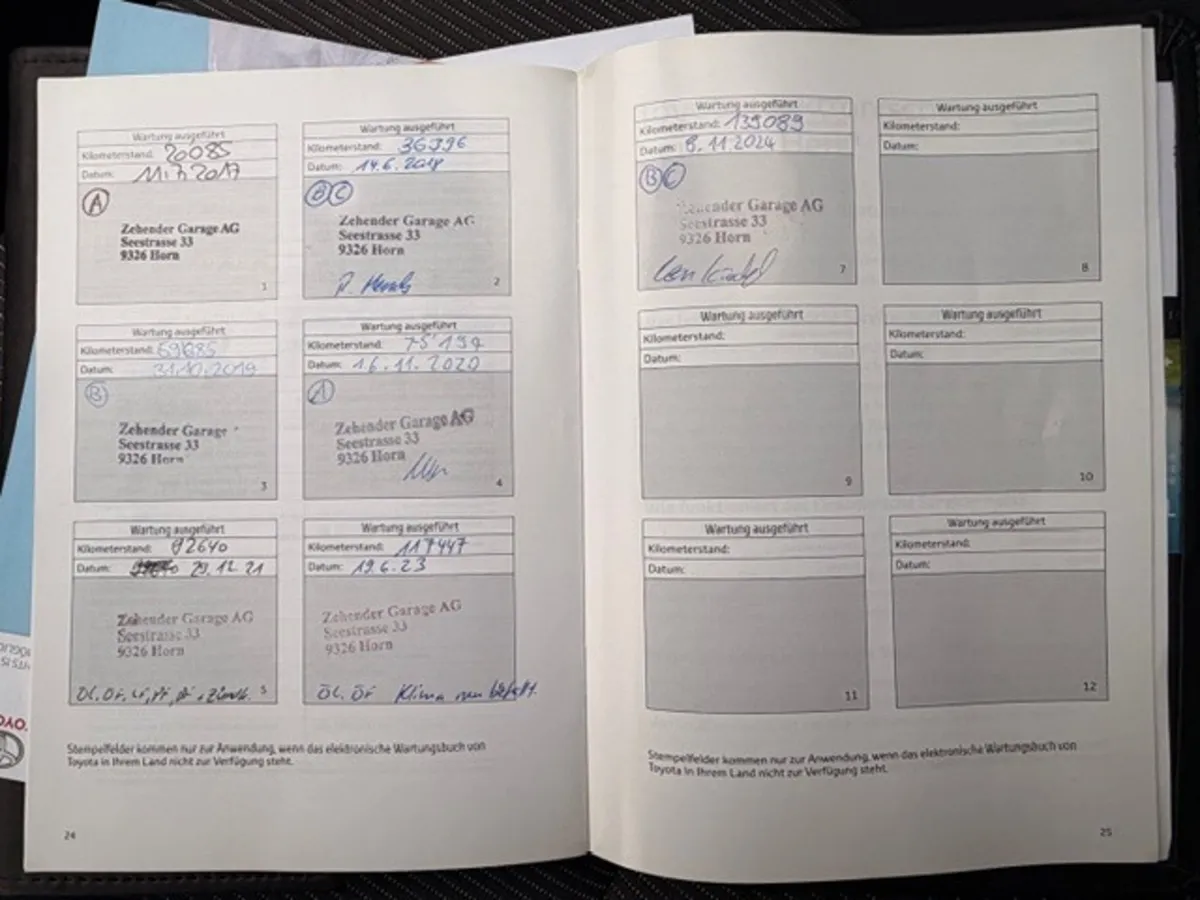 Wartung ausgeführt
Kilometerstand: 20085
Datum: 2017
A
Zehender Garage AG
Seestrasse 33
9326 Horn
1
Wartung ausgeführt
Kilometerstand: 36396
Datum: 14.6.2018
B C
Zehender Garage AG
Seestrasse 33
9326 Horn
2
Wartung ausgeführt
Kilometerstand:
Datum: 31.10.2019
B
Zehender Garage
Seestrasse 33
9326 Horn
3
Wartung ausgeführt
Kilometerstand: 75'194
Datum: 16.11.2020
A
Zehender Garage AG
Seestrasse 33
9326 Horn
4
Wartung ausgeführt
Kilometerstand: 92640
Datum: 29.12.21
Zehender Garage AG
Seestrasse 33
9326 Horn
Öl. ÖF,
5
Wartung ausgeführt
Kilometerstand: 117447
Datum: 19.6.23
Zehender Garage AG
Seestrasse 33
9326 Horn
ÖL. ÖF Klima neu befüllt.
Stempelfelder kommen nur zur Anwendung, wenn das elektronische Wartungsbuch von
Toyota in Ihrem Land nicht zur Verfügung steht.
24
Wartung ausgeführt
Kilometerstand: 139089
Datum: 8.11.2024
B C
Zehender Garage AG
Seestrasse 33
9326 Horn
7
Wartung ausgeführt
Kilometerstand:
Datum:
8
Wartung ausgeführt
Kilometerstand:
Datum:
9
Wartung ausgeführt
Kilometerstand:
Datum:
10
Wartung ausgeführt
Kilometerstand:
Datum:
11
Wartung ausgeführt
Kilometerstand:
Datum:
12
Stempelfelder kommen nur zur Anwendung, wenn das elektronische Wartungsbuch von
Toyota in Ihrem Land nicht zur Verfügung steht.
25